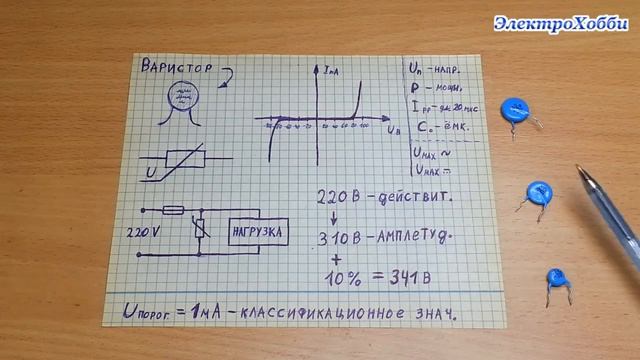 ЭлектроХобби
Варистор
I мА
U В
Uп - напр.
P - мощн.
Iрр - для 20 мкс.
Co - ёмк.
Uмах ~
Uмах ⎓
U
220 V
НАГРУЗКА
220 В - действит.
↓
310 В - АМПЛЕТУД.
+
10% = 341 В
Uпорог = 1мА - КЛАССИФИКАЦИОННОЕ ЗНАЧ.